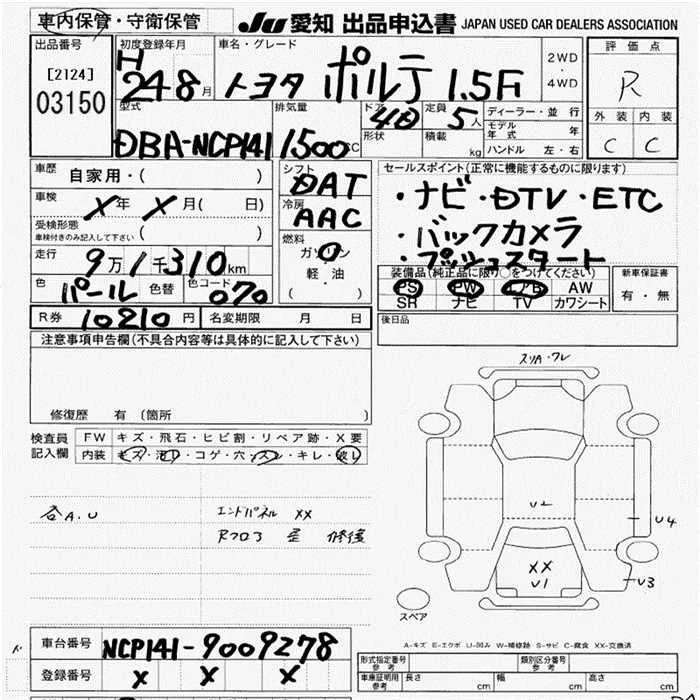 車内保管・守衛保管
JU 愛知 出品申込書 JAPAN USED CAR DEALERS ASSOCIATION
出品番号
[2124]
03150
初度登録年月
H 24 8月
車名・グレード
トヨタ ポルテ 1.5F
2WD
・
4WD
評価点
R
外装 内装
C C
型式
DBA-NCP141
排気量
1500CC
ドア
4D
形状
定員
5人
積載
kg
ディーラー・並行
モデル年式 年
ハンドル 左・右
車歴
自家用・( )
車検
X年 X月( 日)
受検形態
車検付きのみ記入して下さい ( )
走行
9万1千310km
色
パール
色替
色コード
070
シフト
DAT
冷房
AAC
燃料
ガソリン
軽・油
( )
セールスポイント(正常に機能するものに限ります)
・ナビ・DTV・ETC
・バックカメラ
・プッシュスタート
装備品(純正品に限り○をつけてください)
PS PW エアB AW
SR ナビ TV カワシート
新車保証書
有・無
R券 10210円
名変期限 月 日
後日品
注意事項申告欄(不具合内容等は具体的に記入して下さい)
修復歴 有(箇所 )
検査員
記入欄
FW キズ・飛石・ヒビ割・リペア跡・X要
内装 キズ・汚レ・コゲ・穴・スレ・キレ・破レ
各A.U
エンドパネル XX
Rフロア 歪 修復
スリA・ワレ
U2
U4
XX
U1
U3
スペア
A-キズ E-エクボ U-凹み W-補修跡 S-サビ C-腐食 XX-交換済
車台番号 NCP141-9009278
登録番号 X X X
形式指定番号
参考
類別区分番号
参考
車庫証明用
参考
長さ cm 幅 cm 高さ cm